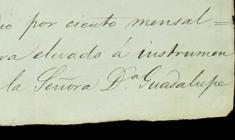 dio por ciento mensal=
ra eluado á instrumen
la Señora D.ª Guadalupe